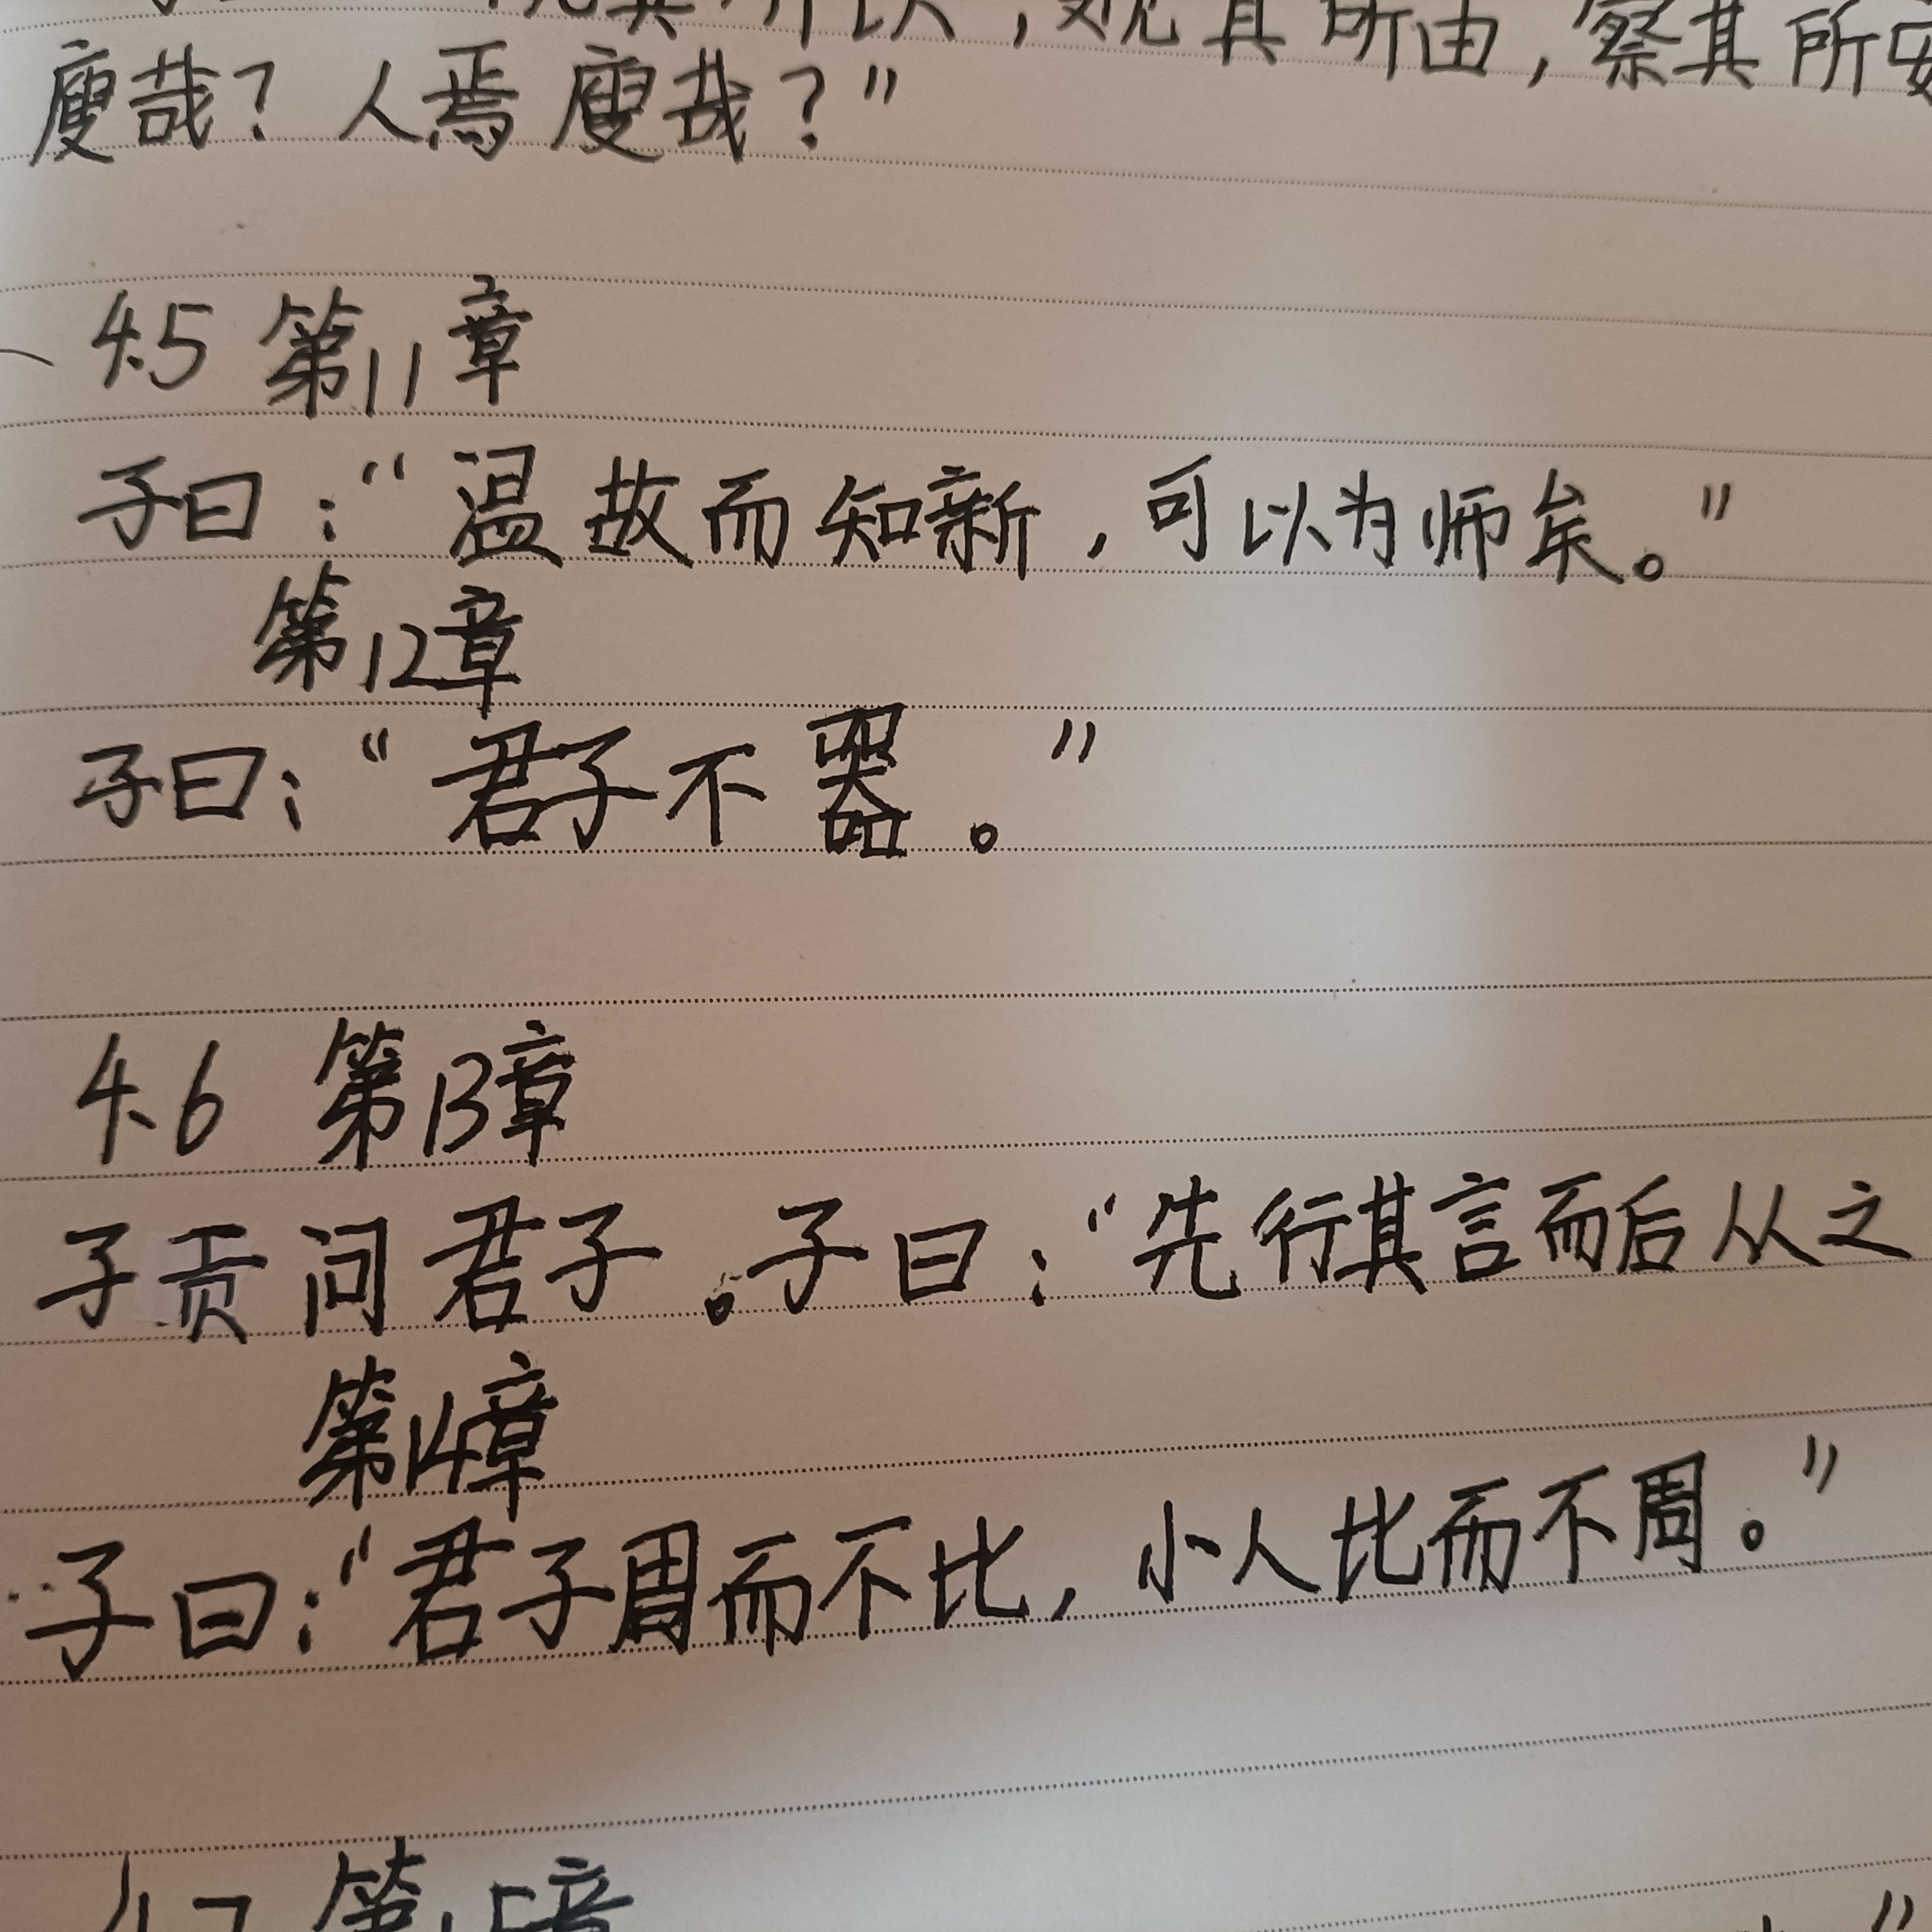 其所以，观其所由，察其所安
廋哉？人焉廋哉？”
4.5 第11章
子曰：“温故而知新，可以为师矣。”
第12章
子曰：“君子不器。”
4.6 第13章
子贡问君子。子曰：“先行其言而后从之
第14章
子曰：“君子周而不比，小人比而不周。”
4.7 第15章